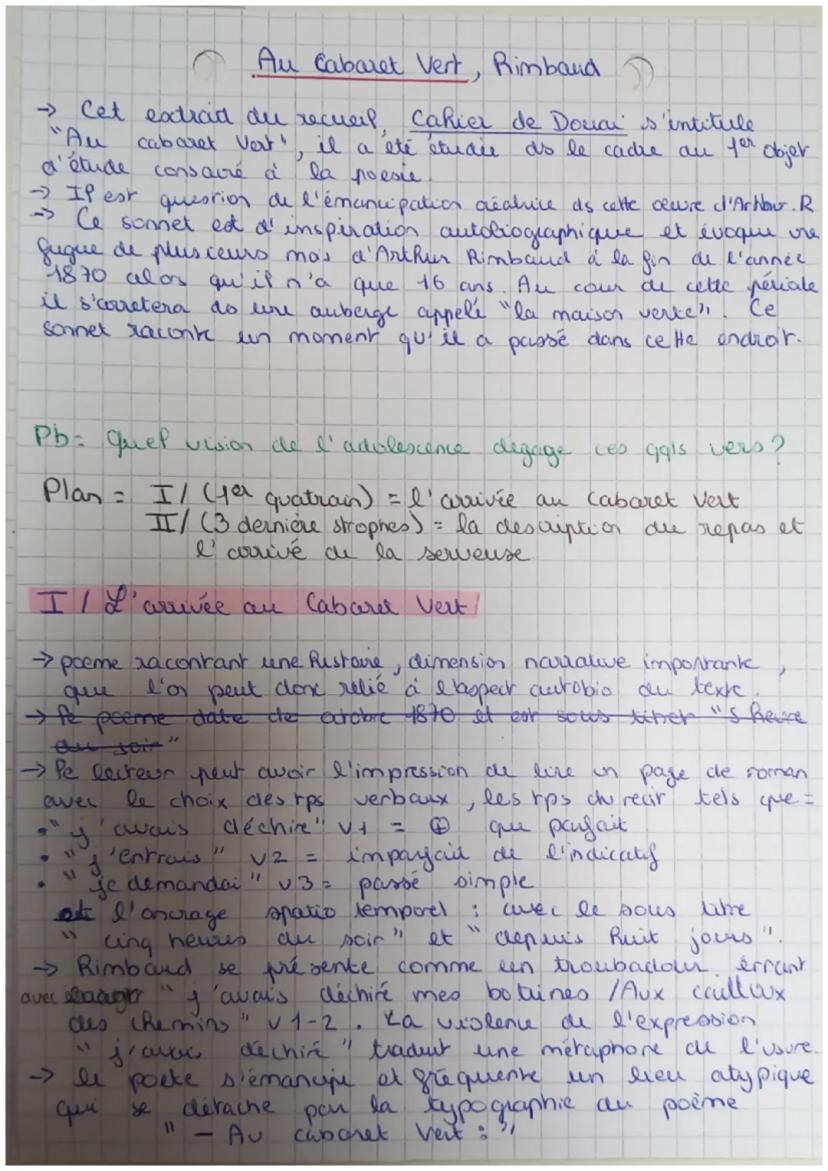 Au Cabaret Vert, Rimbaud
-> Cet extrait du recueil, Cahier de Douai s'intitule
"Au cabaret Vert", il a été étudié ds le cadre au 1er objet
d'étude consacré à la poesie.
-> Il est question de l'émancipation créatrice ds cette oeuvre d'Arthur. R
-> Ce sonnet est d'inspiration autobiographique et évoque une
fugue de plusieurs mois d'Arthur Rimbaud à la fin de l'année
1870 alors qu'il n'a que 16 ans. Au cour de cette période
il s'arretera ds une auberge appelé "la maison verte". Ce
sonnet raconte un moment qu'il a passé dans cette endroit.
Pb = Quel vision de l'adolescence dégage ces qqls vers ?
Plan = I / (1er quatrain) = l'arrivée au Cabaret Vert
II / (3 dernière strophes) = la description du repas et
l'arrivé de la serveuse
I / L'arrivée au Cabaret Vert
-> poeme racontant une histoire, dimension narrative importante,
que l'on peut donc relié à l'aspect autobio du texte.
-> le poeme date de octobre 1870 et est sous titrer "5 heure
du soir"
-> le lecteur peut avoir l'impression de lire un page de roman
avec le choix des tps verbaux, les tps du recit tels que =
• "j'avais déchiré" v1 = ⊕ que parfait
• "j'entrais" v2 = imparfait de l'indicatif
• "je demandai" v3 = passé simple
et l'ancrage spatio temporel : avec le sous titre
"cinq heures du soir" et "depuis huit jours".
-> Rimbaud se présente comme un troubadour errant
avec "j'avais déchiré mes botaines / Aux cailloux
des chemins" v1-2. La violence de l'expression
"j'avais déchiré" traduit une métaphore de l'usure.
-> le poète s'émancipe et fréquente un lieu atypique
qui se détache par la typographie du poème
"- Au cabaret Vert : "